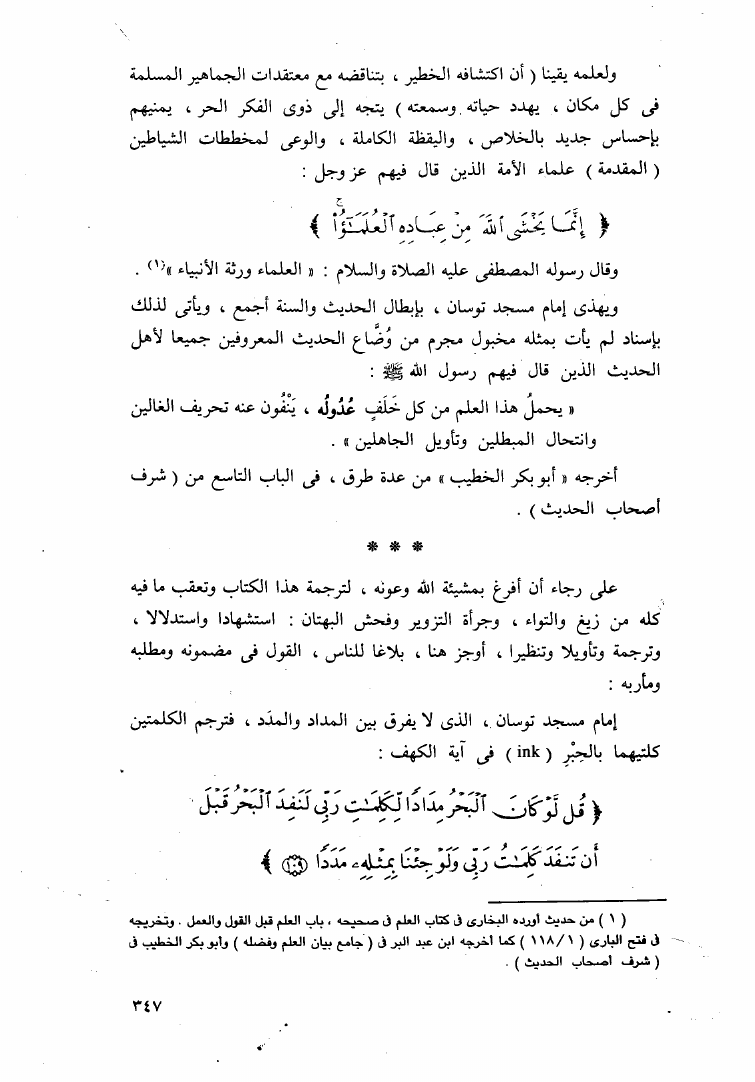 ولعلمه يقينا ( أن اكتشافه الخطير ، بتناقضه مع معتقدات الجماهير المسلمة
فى كل مكان ، يهدد حياته وسمعته ) يتجه إلى ذوى الفكر الحر ، يمنيهم
بإحساس جديد بالخلاص ، واليقظة الكاملة ، والوعى لمخططات الشياطين
( المقدمة ) علماء الأمة الذين قال فيهم عز وجل :
﴿ إِنَّمَا يَخْشَى ٱللَّهَ مِنْ عِبَادِهِ ٱلْعُلَمَـٰٓؤُا۟ ﴾
وقال رسوله المصطفى عليه الصلاة والسلام : « العلماء ورثة الأنبياء »(١) .
ويهذى إمام مسجد توسان ، بإبطال الحديث والسنة أجمع ، ويأتى لذلك
بإسناد لم يأت بمثله مخبول مجرم من وُضَّاع الحديث المعروفين جميعا لأهل
الحديث الذين قال فيهم رسول الله ﷺ :
« يحملُ هذا العلم من كل خَلَفٍ عُدُولُه ، يَنْفُون عنه تحريف الغالين
وانتحال المبطلين وتأويل الجاهلين » .
أخرجه « أبو بكر الخطيب » من عدة طرق ، فى الباب التاسع من ( شرف
أصحاب الحديث ) .
* * *
على رجاء أن أفرغ بمشيئة الله وعونه ، لترجمة هذا الكتاب وتعقب ما فيه
كله من زيغ والتواء ، وجرأة التزوير وفحش البهتان : استشهادا واستدلالا ،
وترجمة وتأويلا وتنظيرا ، أوجز هنا ، بلاغا للناس ، القول فى مضمونه ومطلبه
ومأربه :
إمام مسجد توسان ، الذى لا يفرق بين المداد والمدَد ، فترجم الكلمتين
كلتيهما بالحِبْرِ ( ink ) فى آية الكهف :
﴿ قُل لَّوْ كَانَ ٱلْبَحْرُ مِدَادًا لِّكَلِمَـٰتِ رَبِّى لَنَفِدَ ٱلْبَحْرُ قَبْلَ
أَن تَنفَدَ كَلِمَـٰتُ رَبِّى وَلَوْ جِئْنَا بِمِثْلِهِۦ مَدَدًا ١٠٩ ﴾
( ١ ) من حديث أورده البخارى فى كتاب العلم فى صحيحه ، باب العلم قبل القول والعمل . وتخريجه
فى فتح البارى ( ١١٨/١ ) كما أخرجه ابن عبد البر فى ( جامع بيان العلم وفضله ) وأبو بكر الخطيب فى
( شرف أصحاب الحديث ) .
٣٤٧